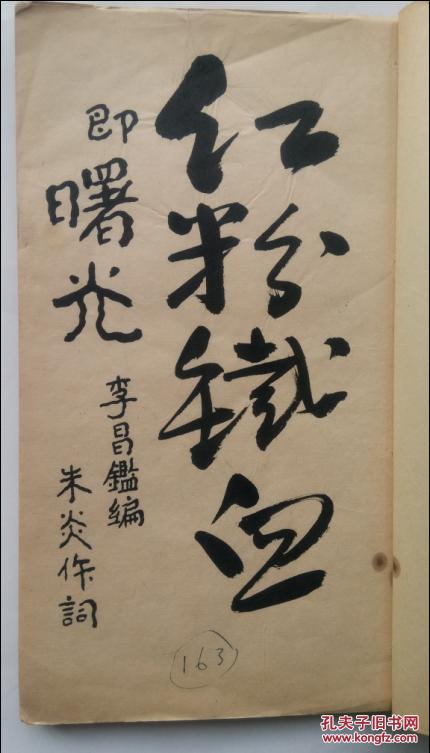 红粉鐵血
即曙光
李昌鑑编
朱炎作詞
163
孔夫子旧书网
www.kongfz.com